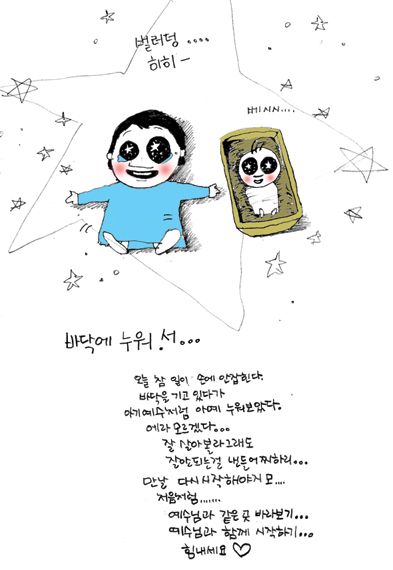 벌러덩 ....
히히 -
바닥에 누워 서...
오늘 참 일이 손에 안잡힌다.
바닥을 기고 있다가
아기예수처럼 아예 누워보았다.
에라 모르겠다...
잘 살아볼라 그래도
잘안되는걸 낸들어찌하리...
만날 다시시작해야지 모....
처음처럼.......
예수님과 같은 곳 바라보기...
예수님과 함께 시작하기...
힘내세요 ♡